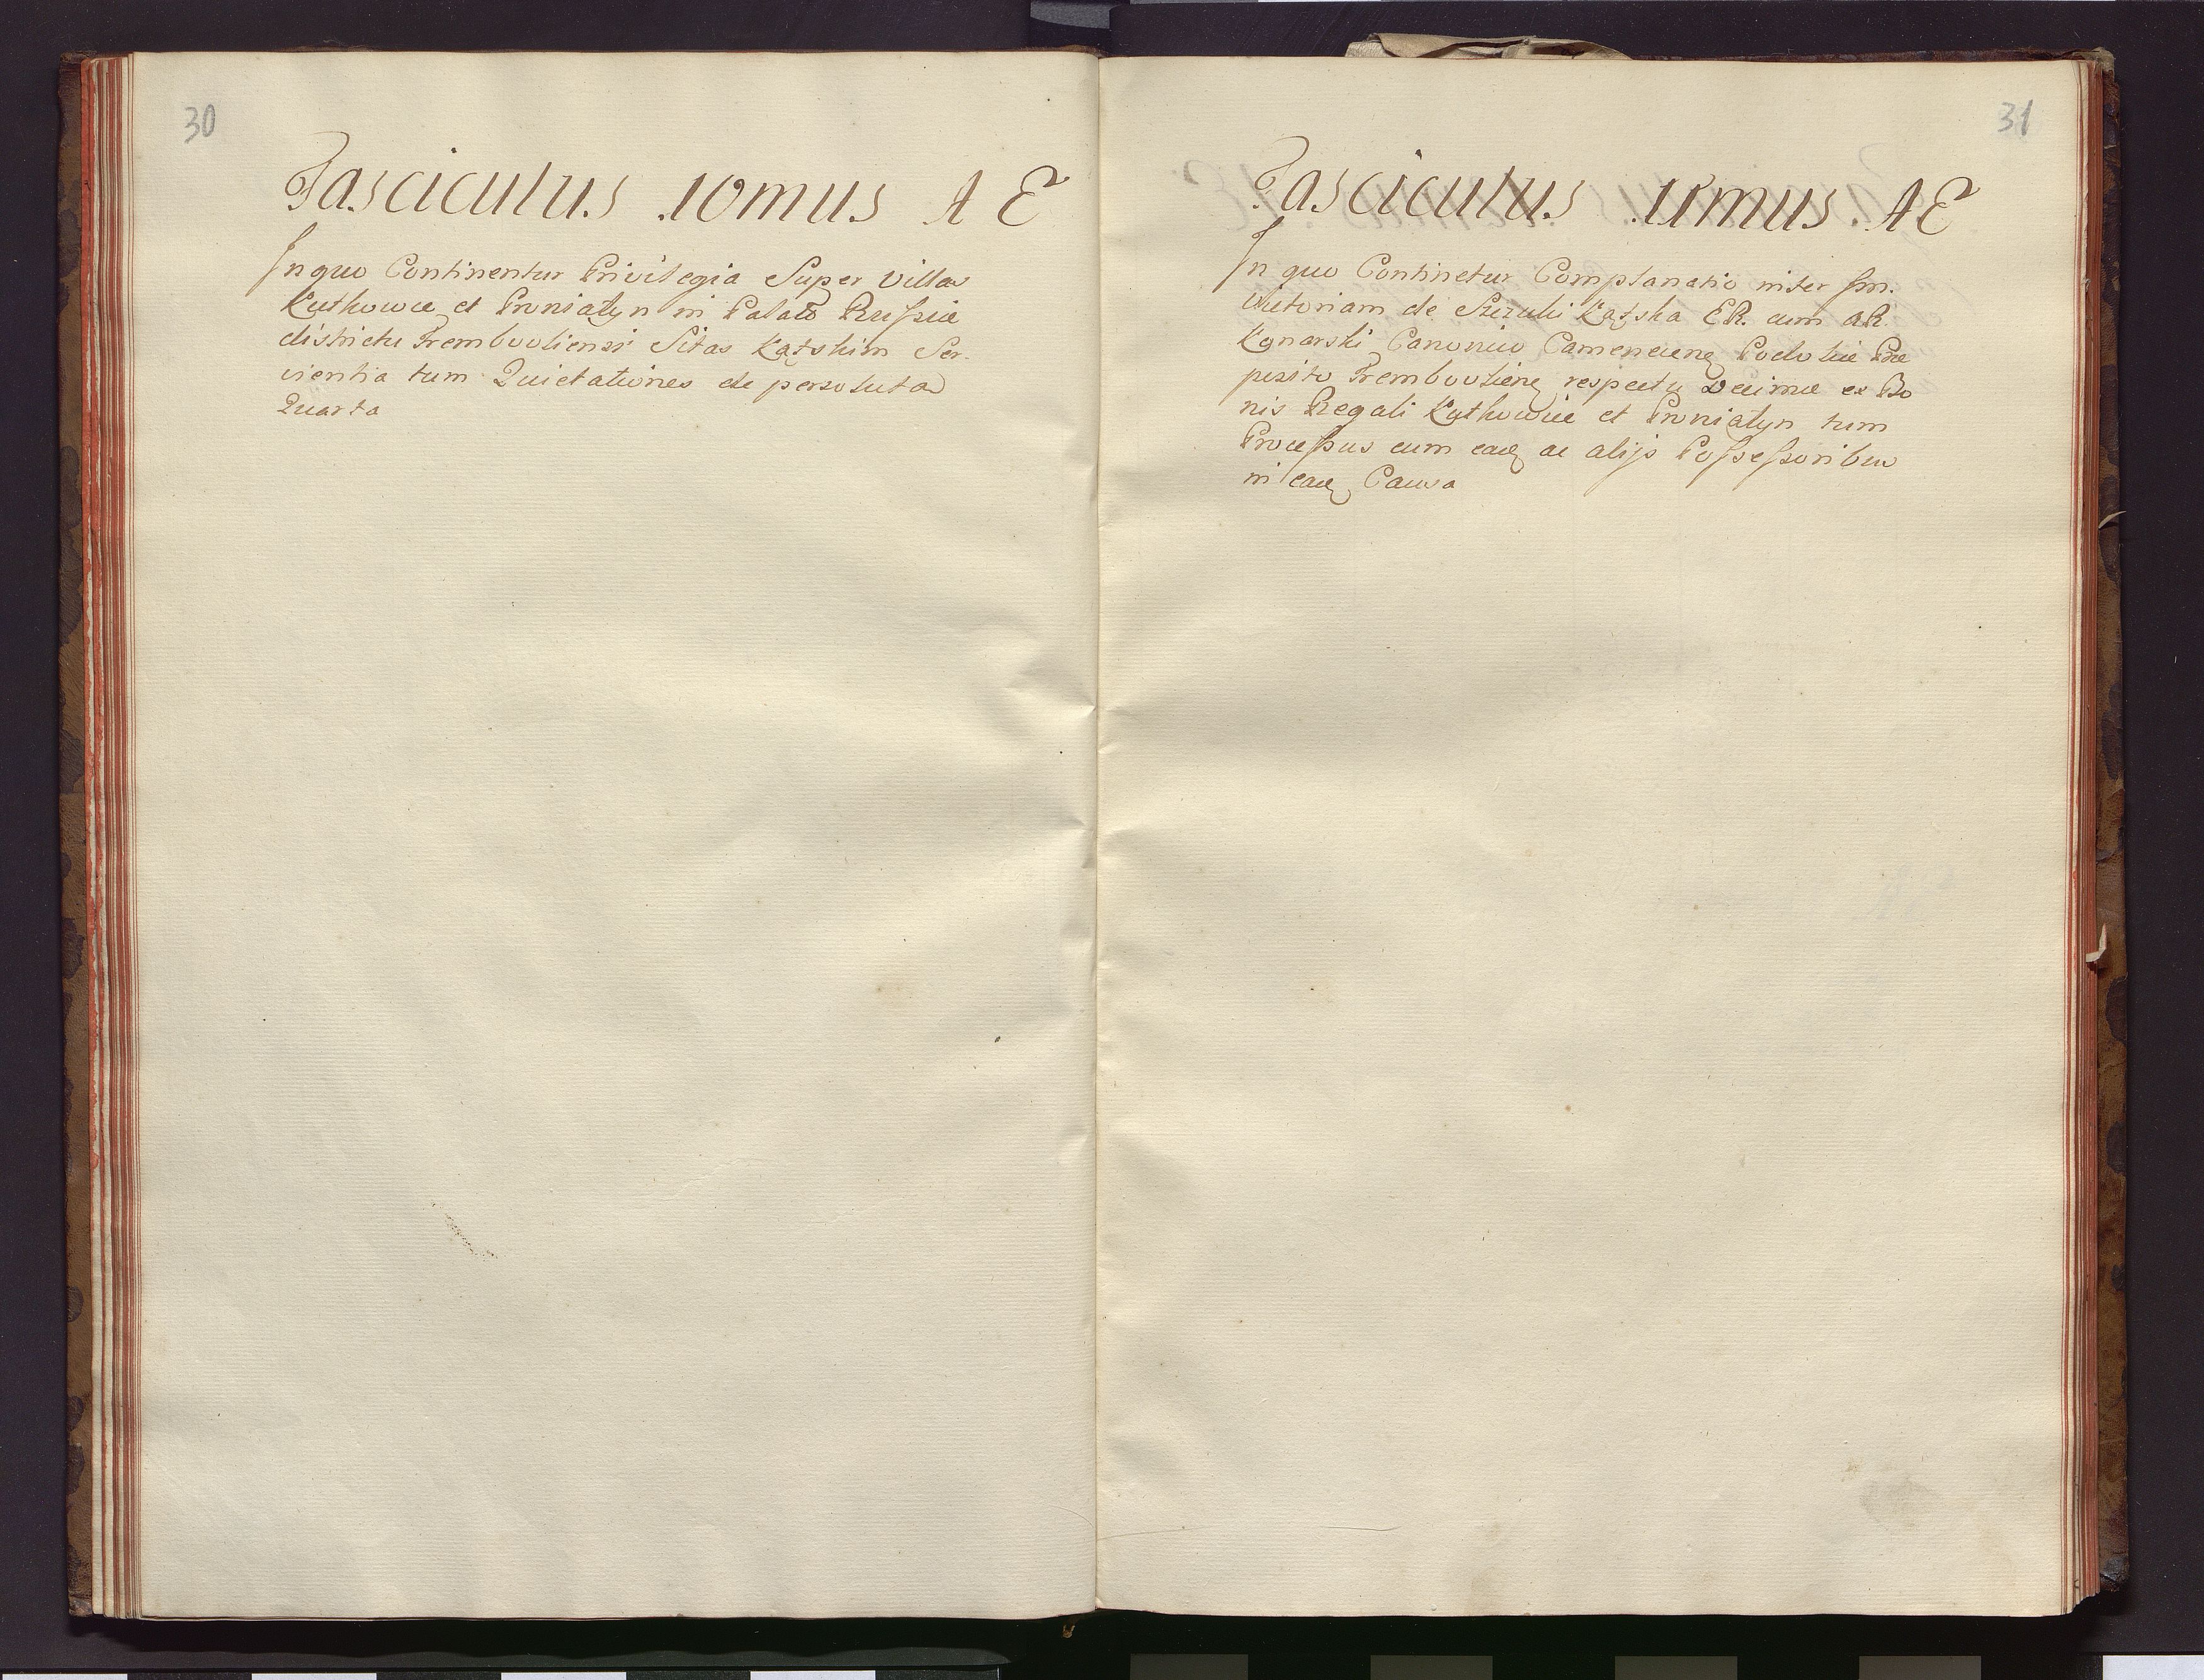 30
Fasciculus 10mus A E
In quo Continentur Privilegia Super Villas
Kutkowce et Proniatyn in Palato Russiae
districtu Trembowliensi Sitas Kątskim Ser-
vientia tum Quietationes de persoluta
Quarta
31
Fasciculus 11mus A E
In quo Continetur Complanatio inter
Victoriam de Szczuki Kątska CR. cum AR.
Konarski Canonico Camenecen Podoliae Prae
posito Trembowlien respectu Decimae ex Bo
nis Regali Kutkowce et Proniatyn tum
Processus cum ead ac alijs Possessoribus
in ead Causa